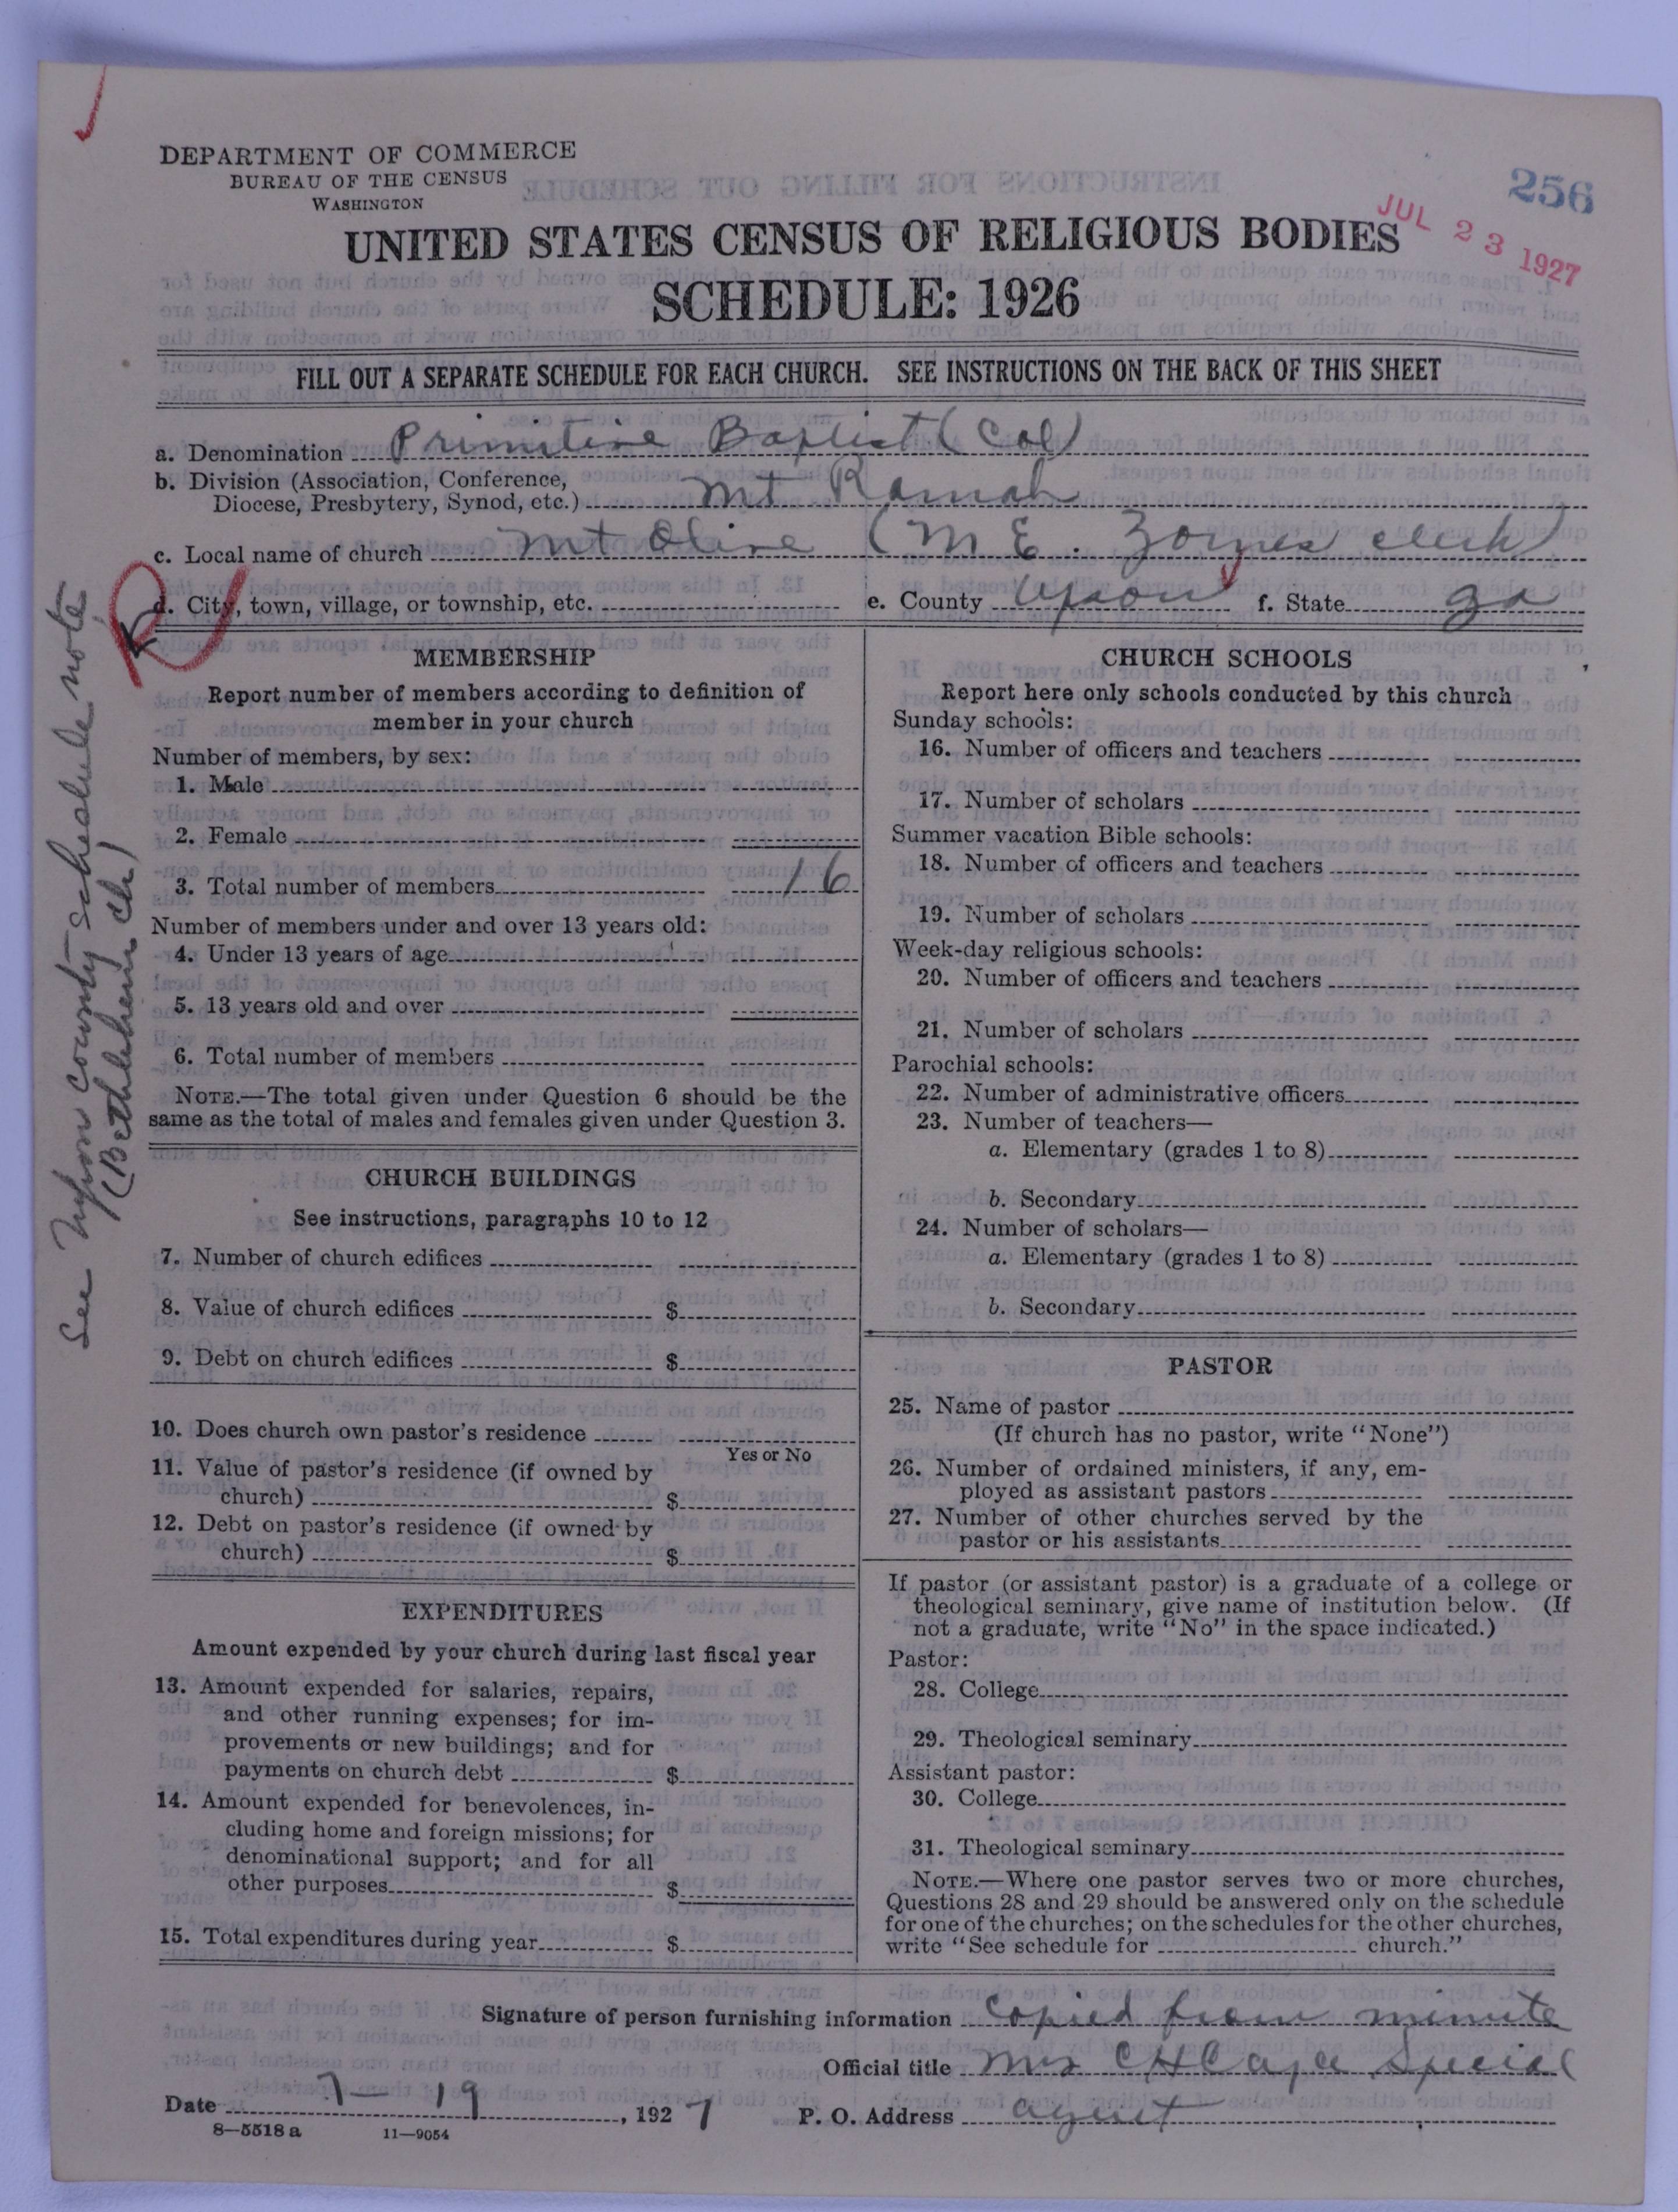 DEPARTMENT OF COMMERCE
BUREAU OF THE CENSUS
WASHINGTON
256
JUL 23 1927
UNITED STATES CENSUS OF RELIGIOUS BODIES
SCHEDULE: 1926
FILL OUT A SEPARATE SCHEDULE FOR EACH CHURCH. SEE INSTRUCTIONS ON THE BACK OF THIS SHEET
a. Denomination Primitive Baptist (Col)
b. Division (Association, Conference,
Diocese, Presbytery, Synod, etc.) Mt Ramah
c. Local name of church Mt Olive (M E. clerk)
d. City, town, village, or township, etc. e. County Upson f. State Ga
See Upson county schedule note
(Bethlehem ch)
MEMBERSHIP
Report number of members according to definition of
member in your church
Number of members, by sex:
1. Male
2. Female
3. Total number of members 16
Number of members under and over 13 years old:
4. Under 13 years of age
5. 13 years old and over
6. Total number of members
NOTE.—The total given under Question 6 should be the
same as the total of males and females given under Question 3.
CHURCH BUILDINGS
See instructions, paragraphs 10 to 12
7. Number of church edifices
8. Value of church edifices $
9. Debt on church edifices $
10. Does church own pastor's residence
Yes or No
11. Value of pastor's residence (if owned by
church) $
12. Debt on pastor's residence (if owned by
church) $
EXPENDITURES
Amount expended by your church during last fiscal year
13. Amount expended for salaries, repairs,
and other running expenses; for im-
provements or new buildings; and for
payments on church debt $
14. Amount expended for benevolences, in-
cluding home and foreign missions; for
denominational support; and for all
other purposes $
15. Total expenditures during year $
CHURCH SCHOOLS
Report here only schools conducted by this church
Sunday schools:
16. Number of officers and teachers
17. Number of scholars
Summer vacation Bible schools:
18. Number of officers and teachers
19. Number of scholars
Week-day religious schools:
20. Number of officers and teachers
21. Number of scholars
Parochial schools:
22. Number of administrative officers
23. Number of teachers—
a. Elementary (grades 1 to 8)
b. Secondary
24. Number of scholars—
a. Elementary (grades 1 to 8)
b. Secondary
PASTOR
25. Name of pastor
(If church has no pastor, write "None")
26. Number of ordained ministers, if any, em-
ployed as assistant pastors
27. Number of other churches served by the
pastor or his assistants
If pastor (or assistant pastor) is a graduate of a college or
theological seminary, give name of institution below. (If
not a graduate, write "No" in the space indicated.)
Pastor:
28. College
29. Theological seminary
Assistant pastor:
30. College
31. Theological seminary
NOTE.—Where one pastor serves two or more churches,
Questions 28 and 29 should be answered only on the schedule
for one of the churches; on the schedules for the other churches,
write "See schedule for church."
Signature of person furnishing information Copied from minute
Official title Mrs C H Special
Date 7-19, 1927 P. O. Address agent
8—5518 a 11—9054